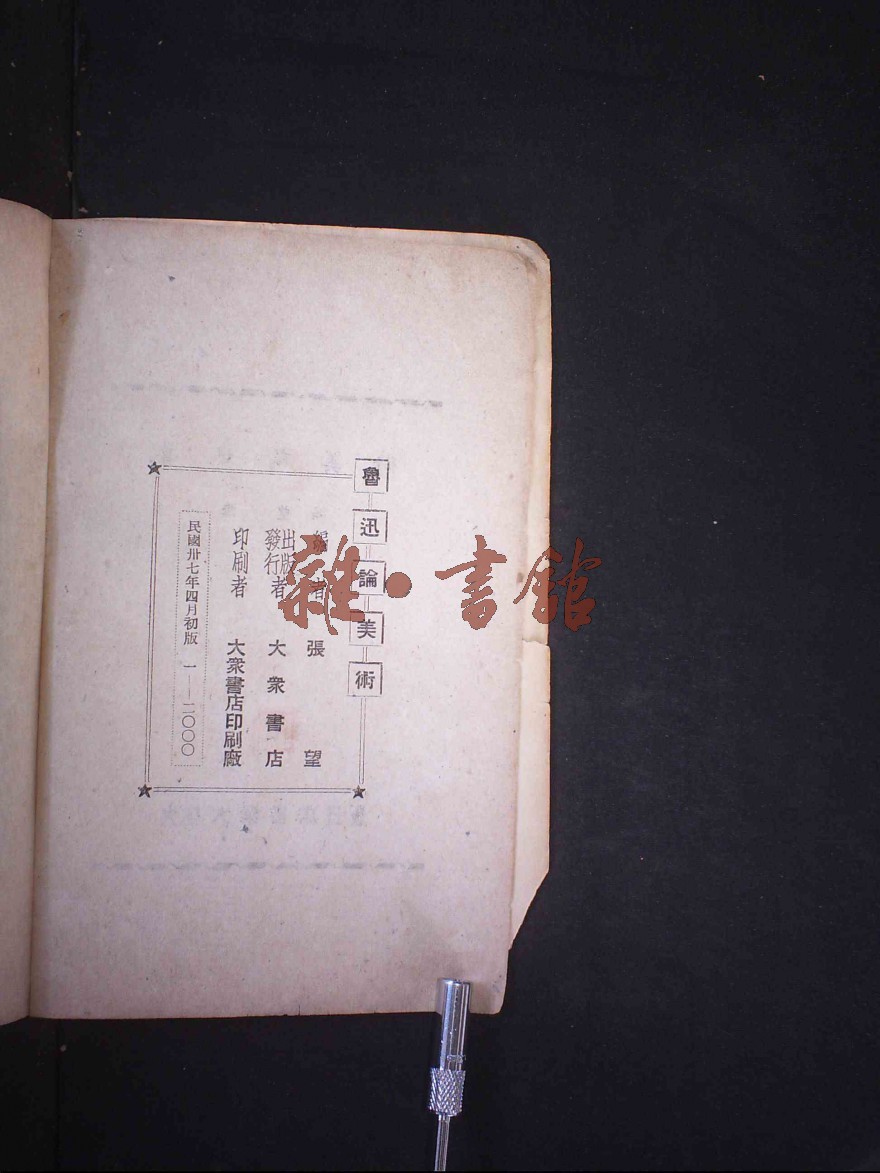 魯迅論美術
編者 張望
出版發行者 大衆書店
印刷者 大衆書店印刷廠
民國卅七年四月初版 一——二〇〇〇
雜·書館